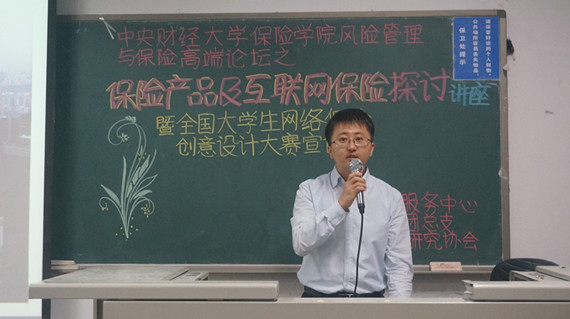 中央财经大学保险学院风险管理
与保险高端论坛之
保险产品及互联网保险探讨讲座
暨全国大学生网络保
创意设计大赛宣
服务中心
总支
研究协会
保卫处提示